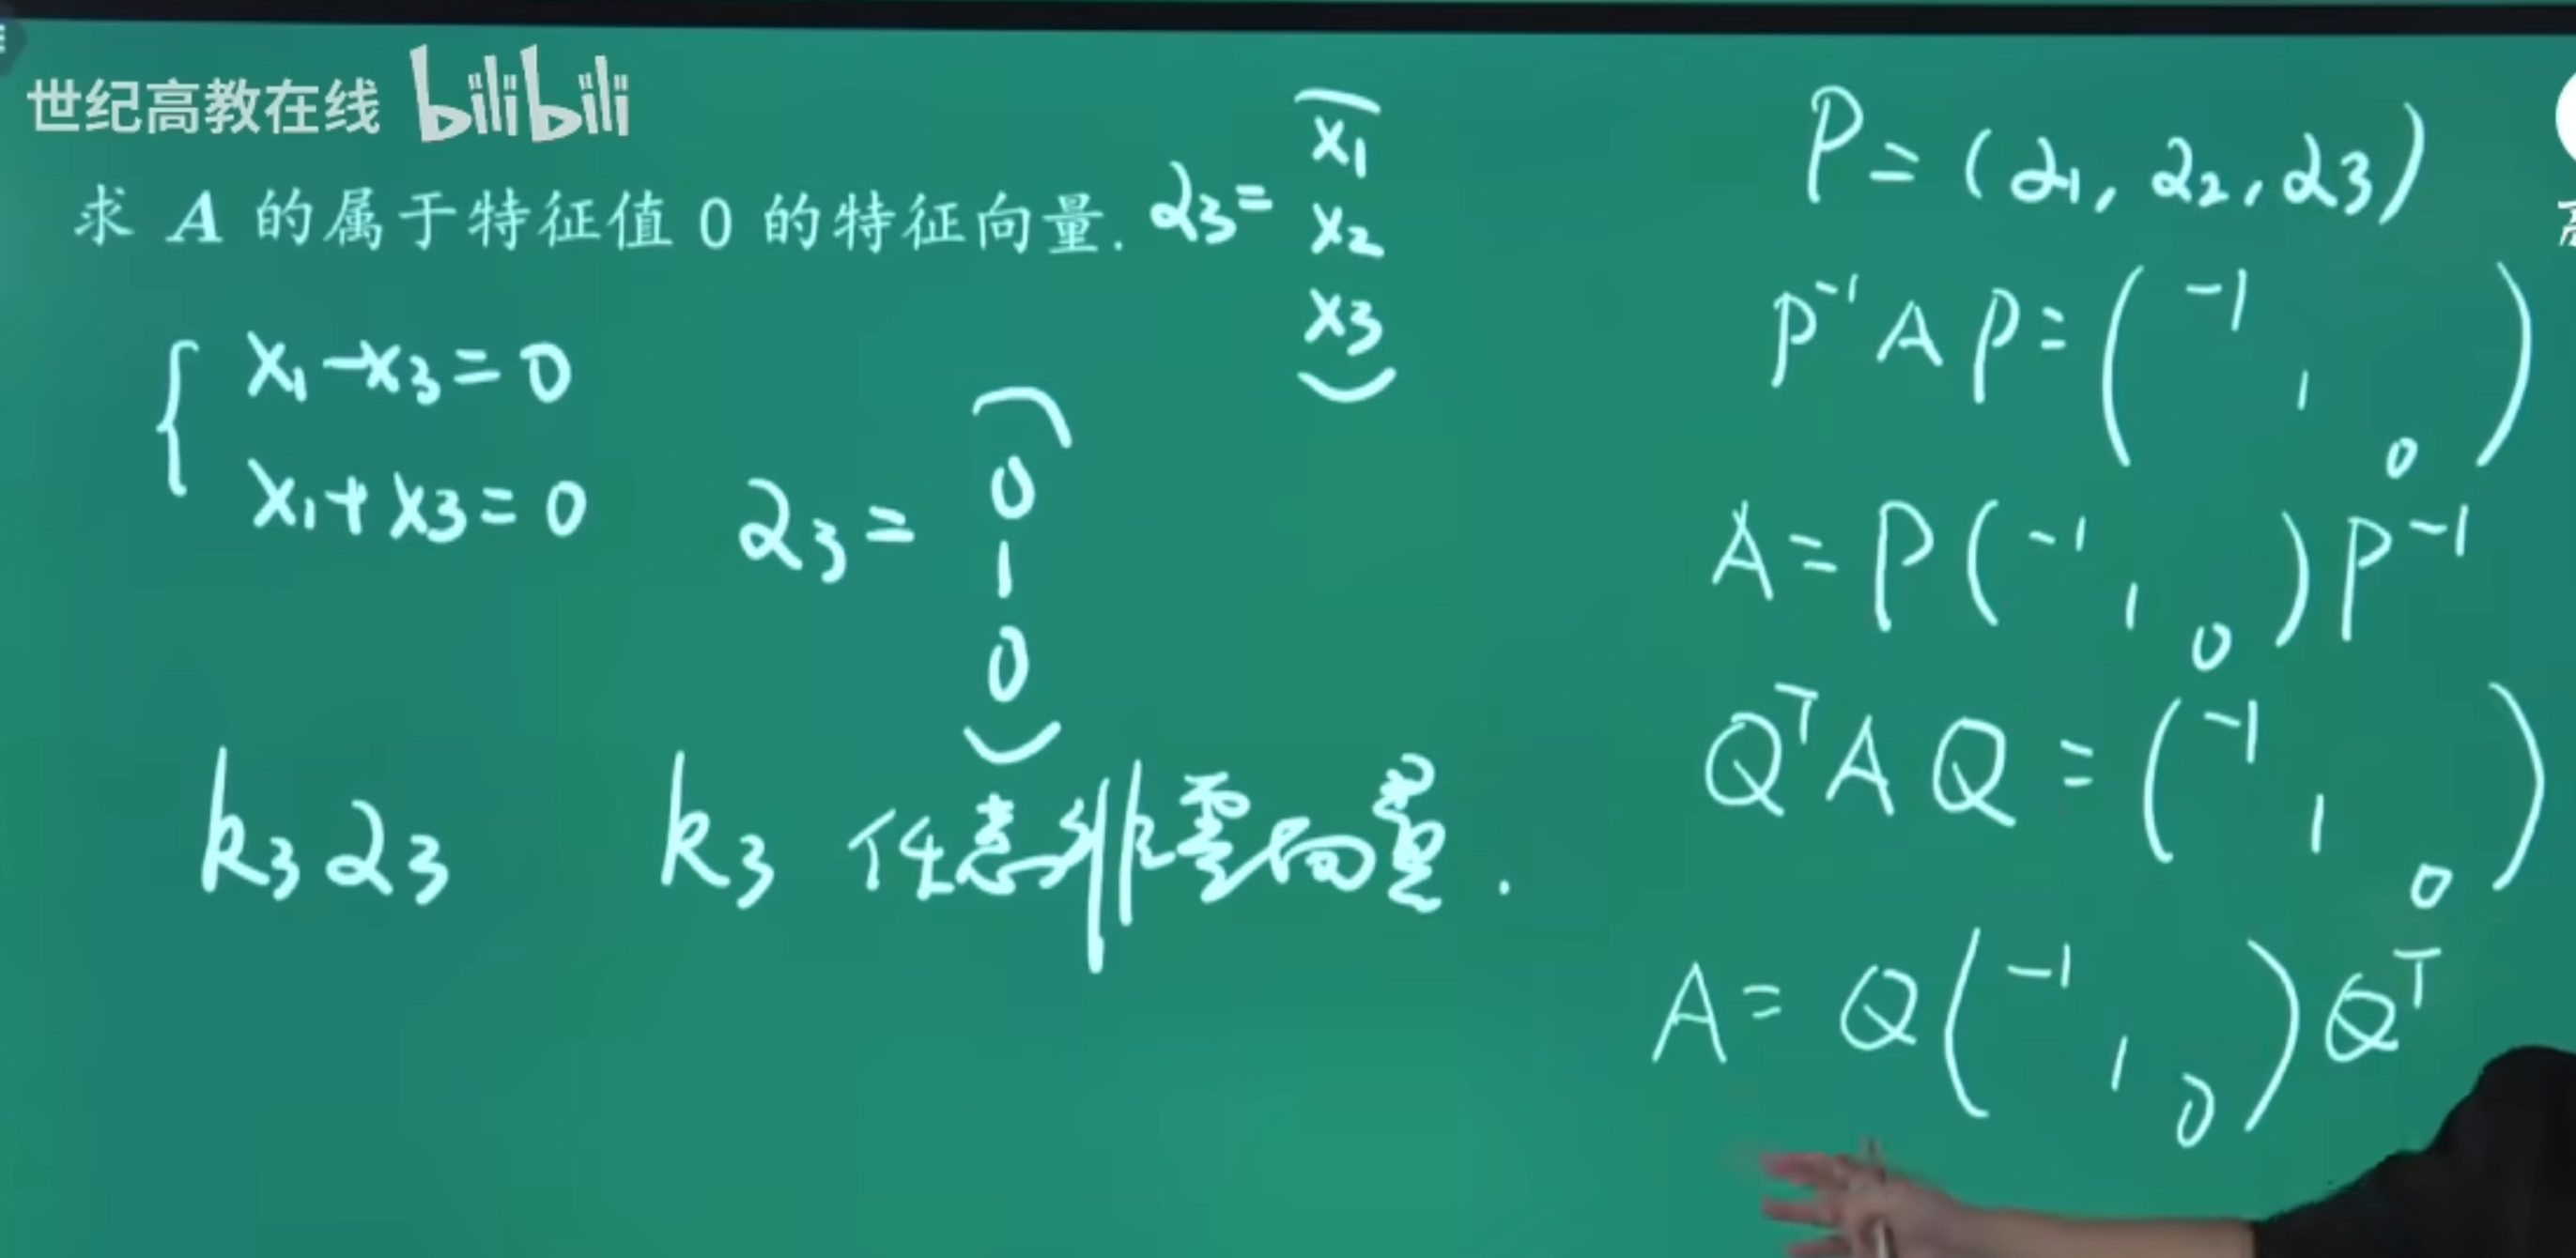 世纪高教在线 bilibili
求 A 的属于特征值 0 的特征向量.
α3 = (x1
x2
x3)
{ x1 - x3 = 0
x1 + x3 = 0
α3 = (0
1
0)
k3 α3 k3 任意非零向量.
P = (α1, α2, α3)
P⁻¹ A P = (-1
1
0)
A = P (-1
1
0) P⁻¹
Qᵀ A Q = (-1
1
0)
A = Q (-1
1
0) Qᵀ